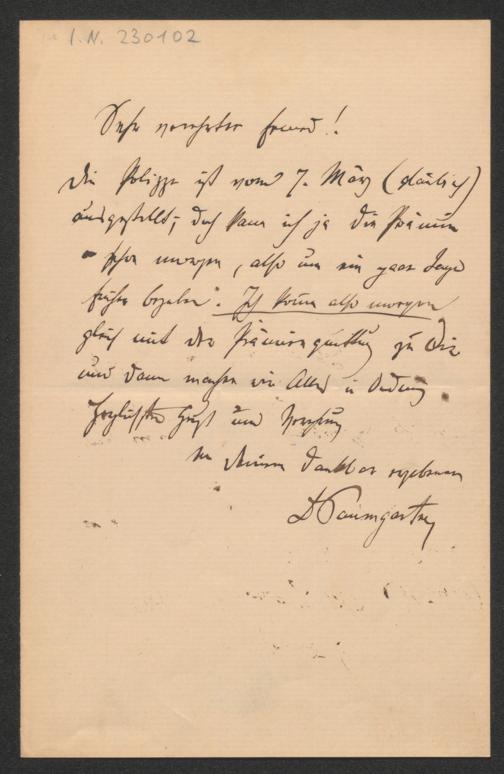 I. N. 230102
Sehr verehrter Freund!
Die Polizze ist vom 7. März (glaub ich)
ausgestellt; doch kann ich ja die Prämie
schon morgen, also um ein paar Tage
früher begeben. Ich komme also morgen
gleich mit der Prämienquittung zu Dir
und dann machen wir Alles in Ordnung
Herzlichsten Gruß und Verehrung
Deinem dankbar ergebenen
D Paumgartner